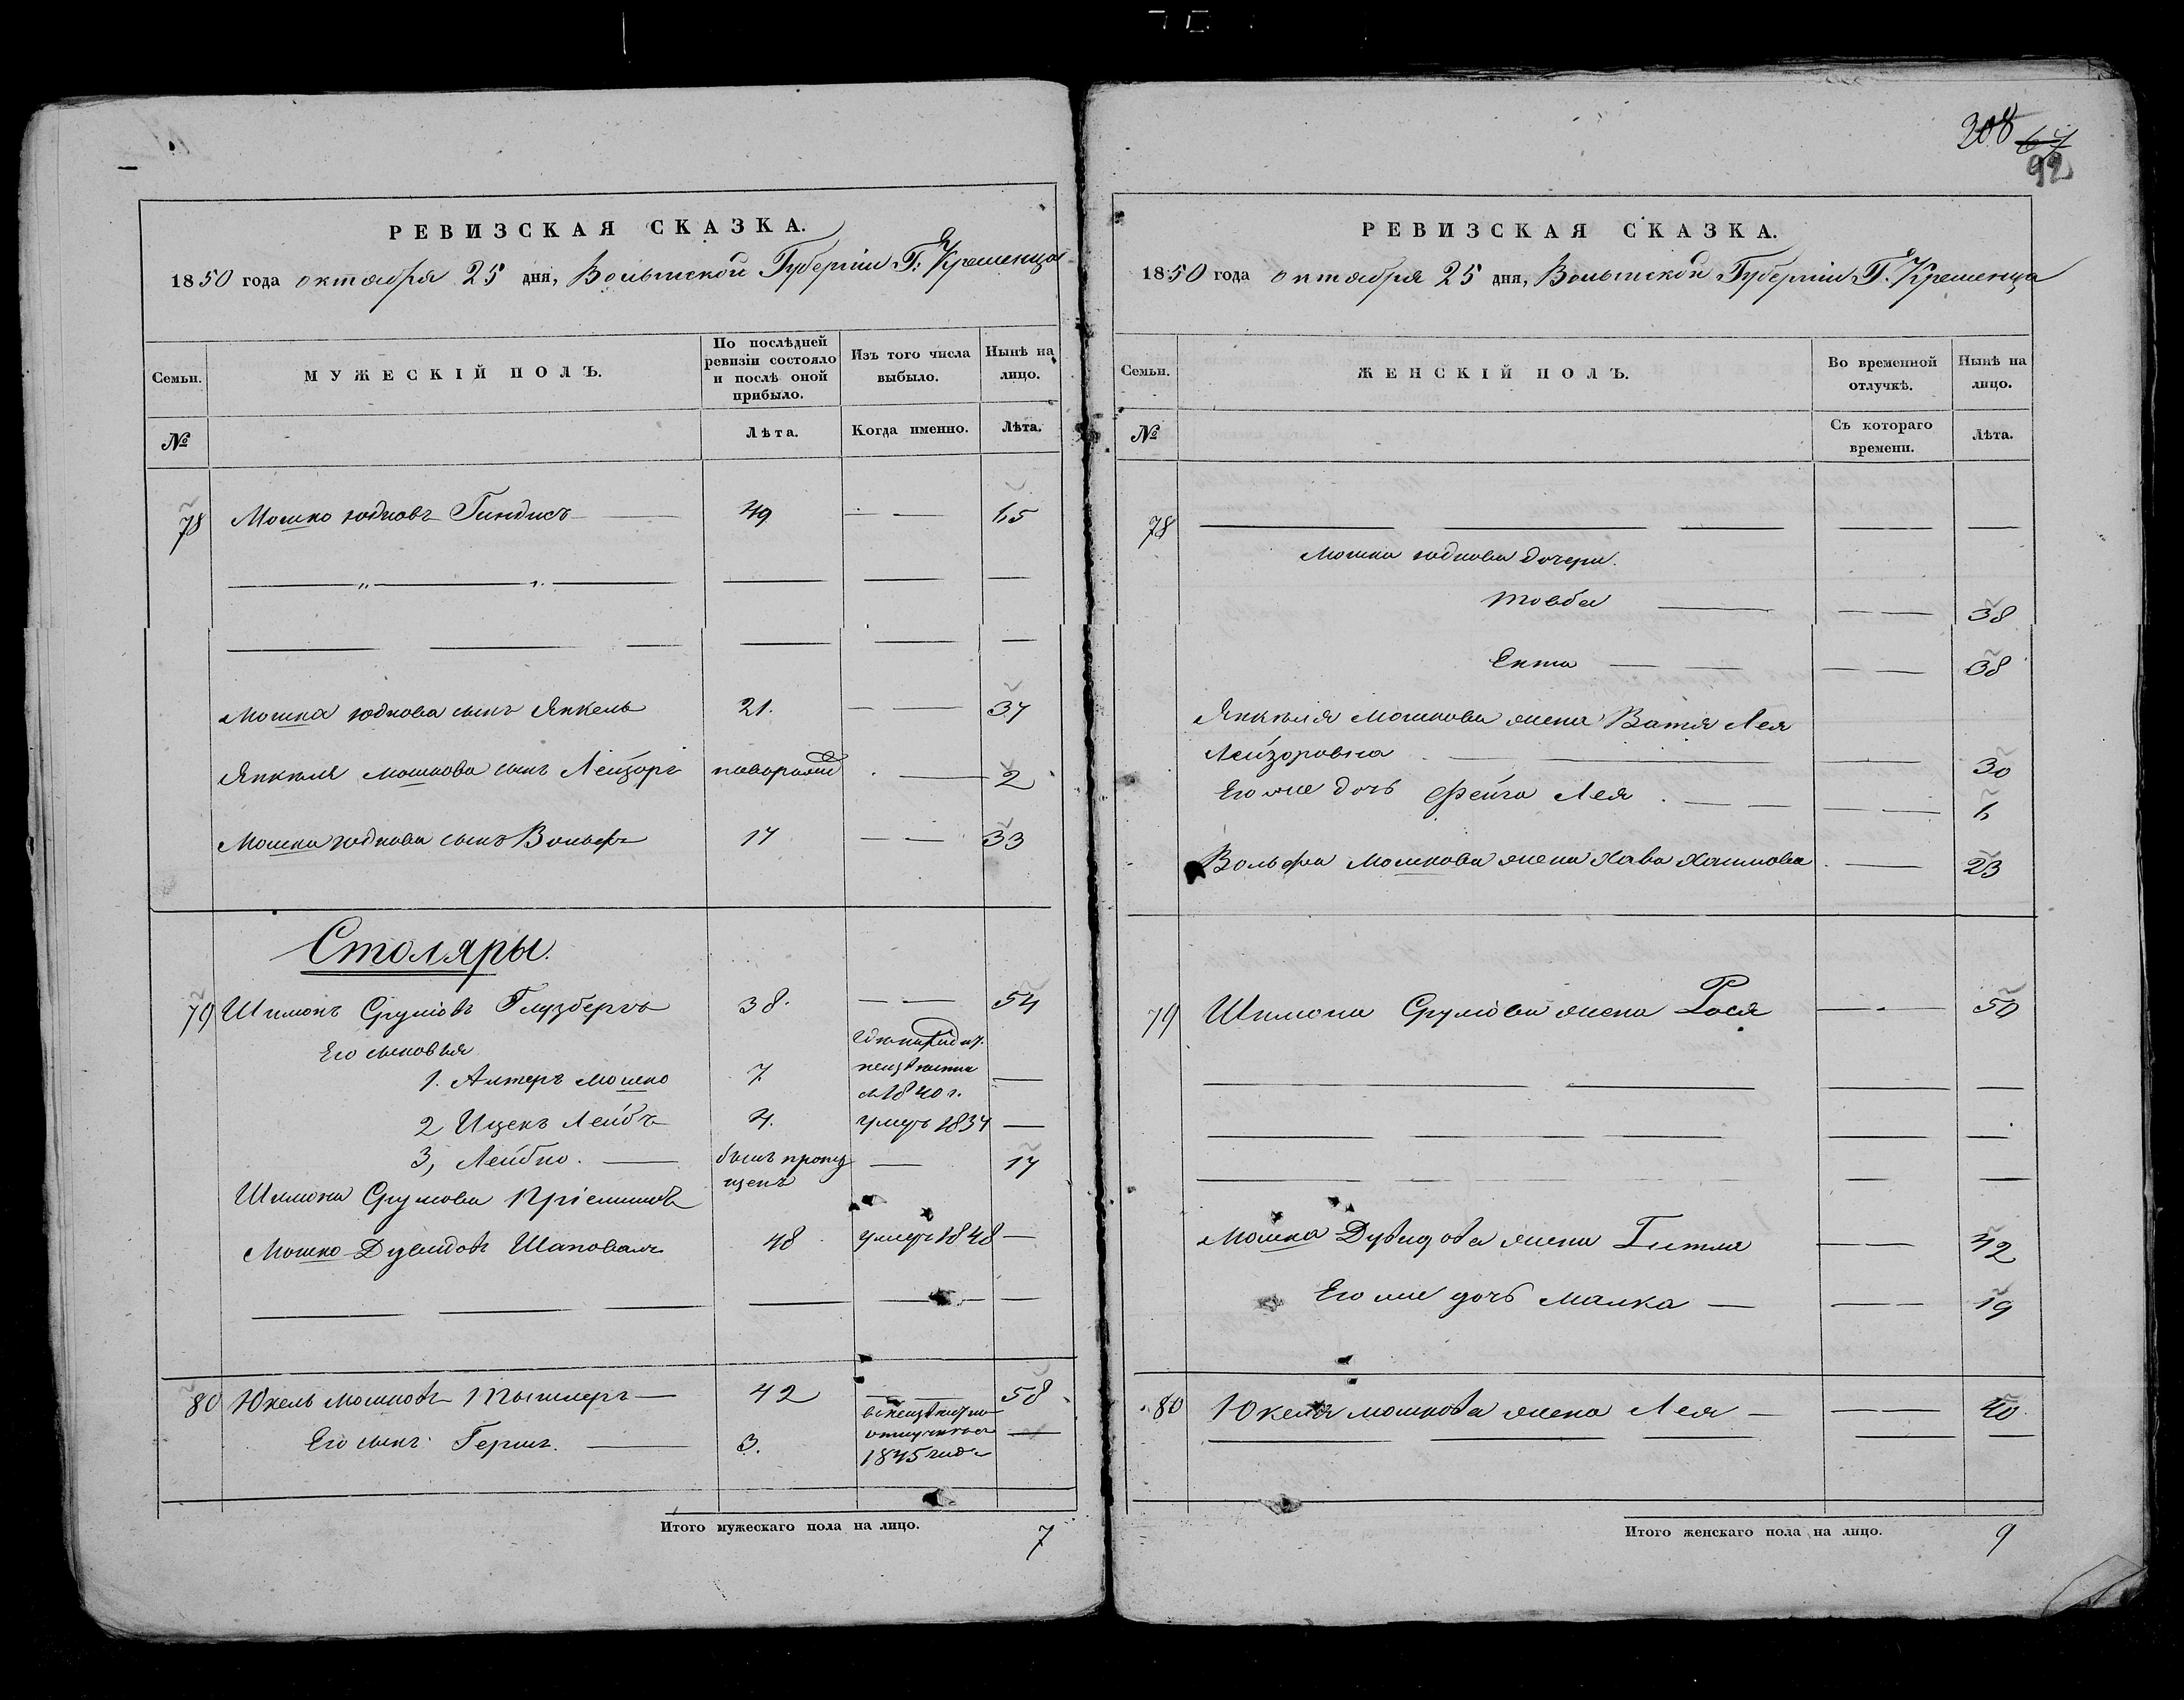 308 67
92
РЕВИЗСКАЯ СКАЗКА.
1850 года октября 25 дня, Волынской Губернiи Г. Кременца
Семьи.
МУЖЕСКIЙ ПОЛЪ.
По послѣдней ревизiи состояло и послѣ оной прибыло.
Изъ того числа выбыло.
Нынѣ на лицо.
№
Лѣта.
Когда именно.
Лѣта.
78 Мошко Юдковъ Гиндисъ 49 — — 65
Мошка Юдкова сынъ Янкель 21. — — 37
Янкеля Мошкова сынъ Лейзоръ новорожд — 2
Мошка Юдкова сынъ Вольфъ 17 — — 33
Столяры.
79 Шимонъ Срулiовъ Глузбергъ 38. — — 54
Его сыновья
1. Алтеръ Мошко 7. неизвѣстно съ 1840 г. —
2 Ицекъ Лейбъ 4. умеръ 1834 —
3, Лейбко. — былъ пропущенъ — 17
Шимона Срулiова прiемышъ
Мошко Дувидовъ Шаповалъ 48 умеръ 1848 —
80 Юкель Мошковъ Тышлеръ — 42 — — 58
Его сынъ Гершъ. — 3. въ неизвѣстной отлучке съ 1845 года —
Итого мужескаго пола на лицо. 7
РЕВИЗСКАЯ СКАЗКА.
1850 года октября 25 дня, Волынской Губернiи Г. Кременца
Семьи.
ЖЕНСКIЙ ПОЛЪ.
Во временной отлучкѣ.
Нынѣ на лицо.
№
Съ котораго времени.
Лѣта.
78
Мошка Юдкова дочери.
Товба — — — 38
Ента — — — — 38
Янкеля Мошкова жена Бася Лея
Лейзоровна — — 30
Его же дочь Фейга Лея — — — — 6
Вольфа Мошкова жена Хава Хаимова — 23
79 Шимона Срулiова жена Рося — — 50
Мошка Дувидова жена Гитля — — 42
Его же дочь Малка — — — 19
80 Юкеля Мошкова жена Лея — — — 40
Итого женскаго пола на лицо. 9